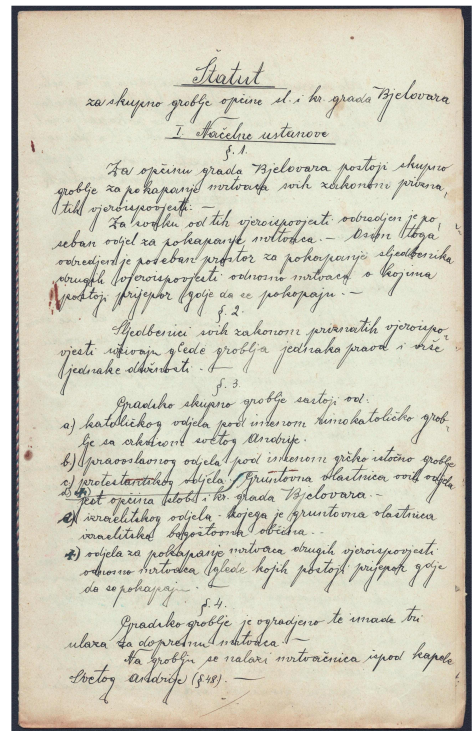 Štatut
za skupno groblje općine sl. i kr. grada Bjelovara
I. Načelne ustanove
§. 1.
Za općinu grada Bjelovara postoji skupno
groblje za pokapanje mrtvaca svih zakonom prizna,
tih vjeroispovjesti. —
Za svaku od tih vjeroispovjesti odredjen je po,
seban odjel za pokapanje mrtvaca. — Osim toga
odredjen je poseban prostor za pokapanje sljedbenika
drugih vjeroispovjesti odnosno mrtvaca o kojima
postoji prijepor gdje da se pokopaju. —
§. 2.
Sljedbenici svih zakonom priznatih vjeroispo-
vjesti uživaju glede groblja jednaka prava i vrše
jednake dužnosti. —
§. 3.
Gradsko skupno groblje sastoji od:
a) katoličkog odjela pod imenom rimokatoličko grob-
lje sa crkvom svetog Andrije.
b) pravoslavnog odjela pod imenom grčko istočno groblje
c) protestantskog odjela, gruntovna vlastnica ovih odjela
jest općina slob. i kr. grada Bjelovara. —
izraelitskog odjela kojega je gruntovna vlastnica
izraelitska bogoštovna općina. —
odjela za pokapanje mrtvaca drugih vjeroispovjesti
odnosno mrtvaca glede kojih postoji prijepor gdje
da se pokapaju. —
§. 4.
Gradsko groblje je ogradjeno te imade tri
ulaza za dopremu mrtvaca. —
Na groblju se nalazi mrtvačnica ispod kapele
Svetog Andrije (§48). —